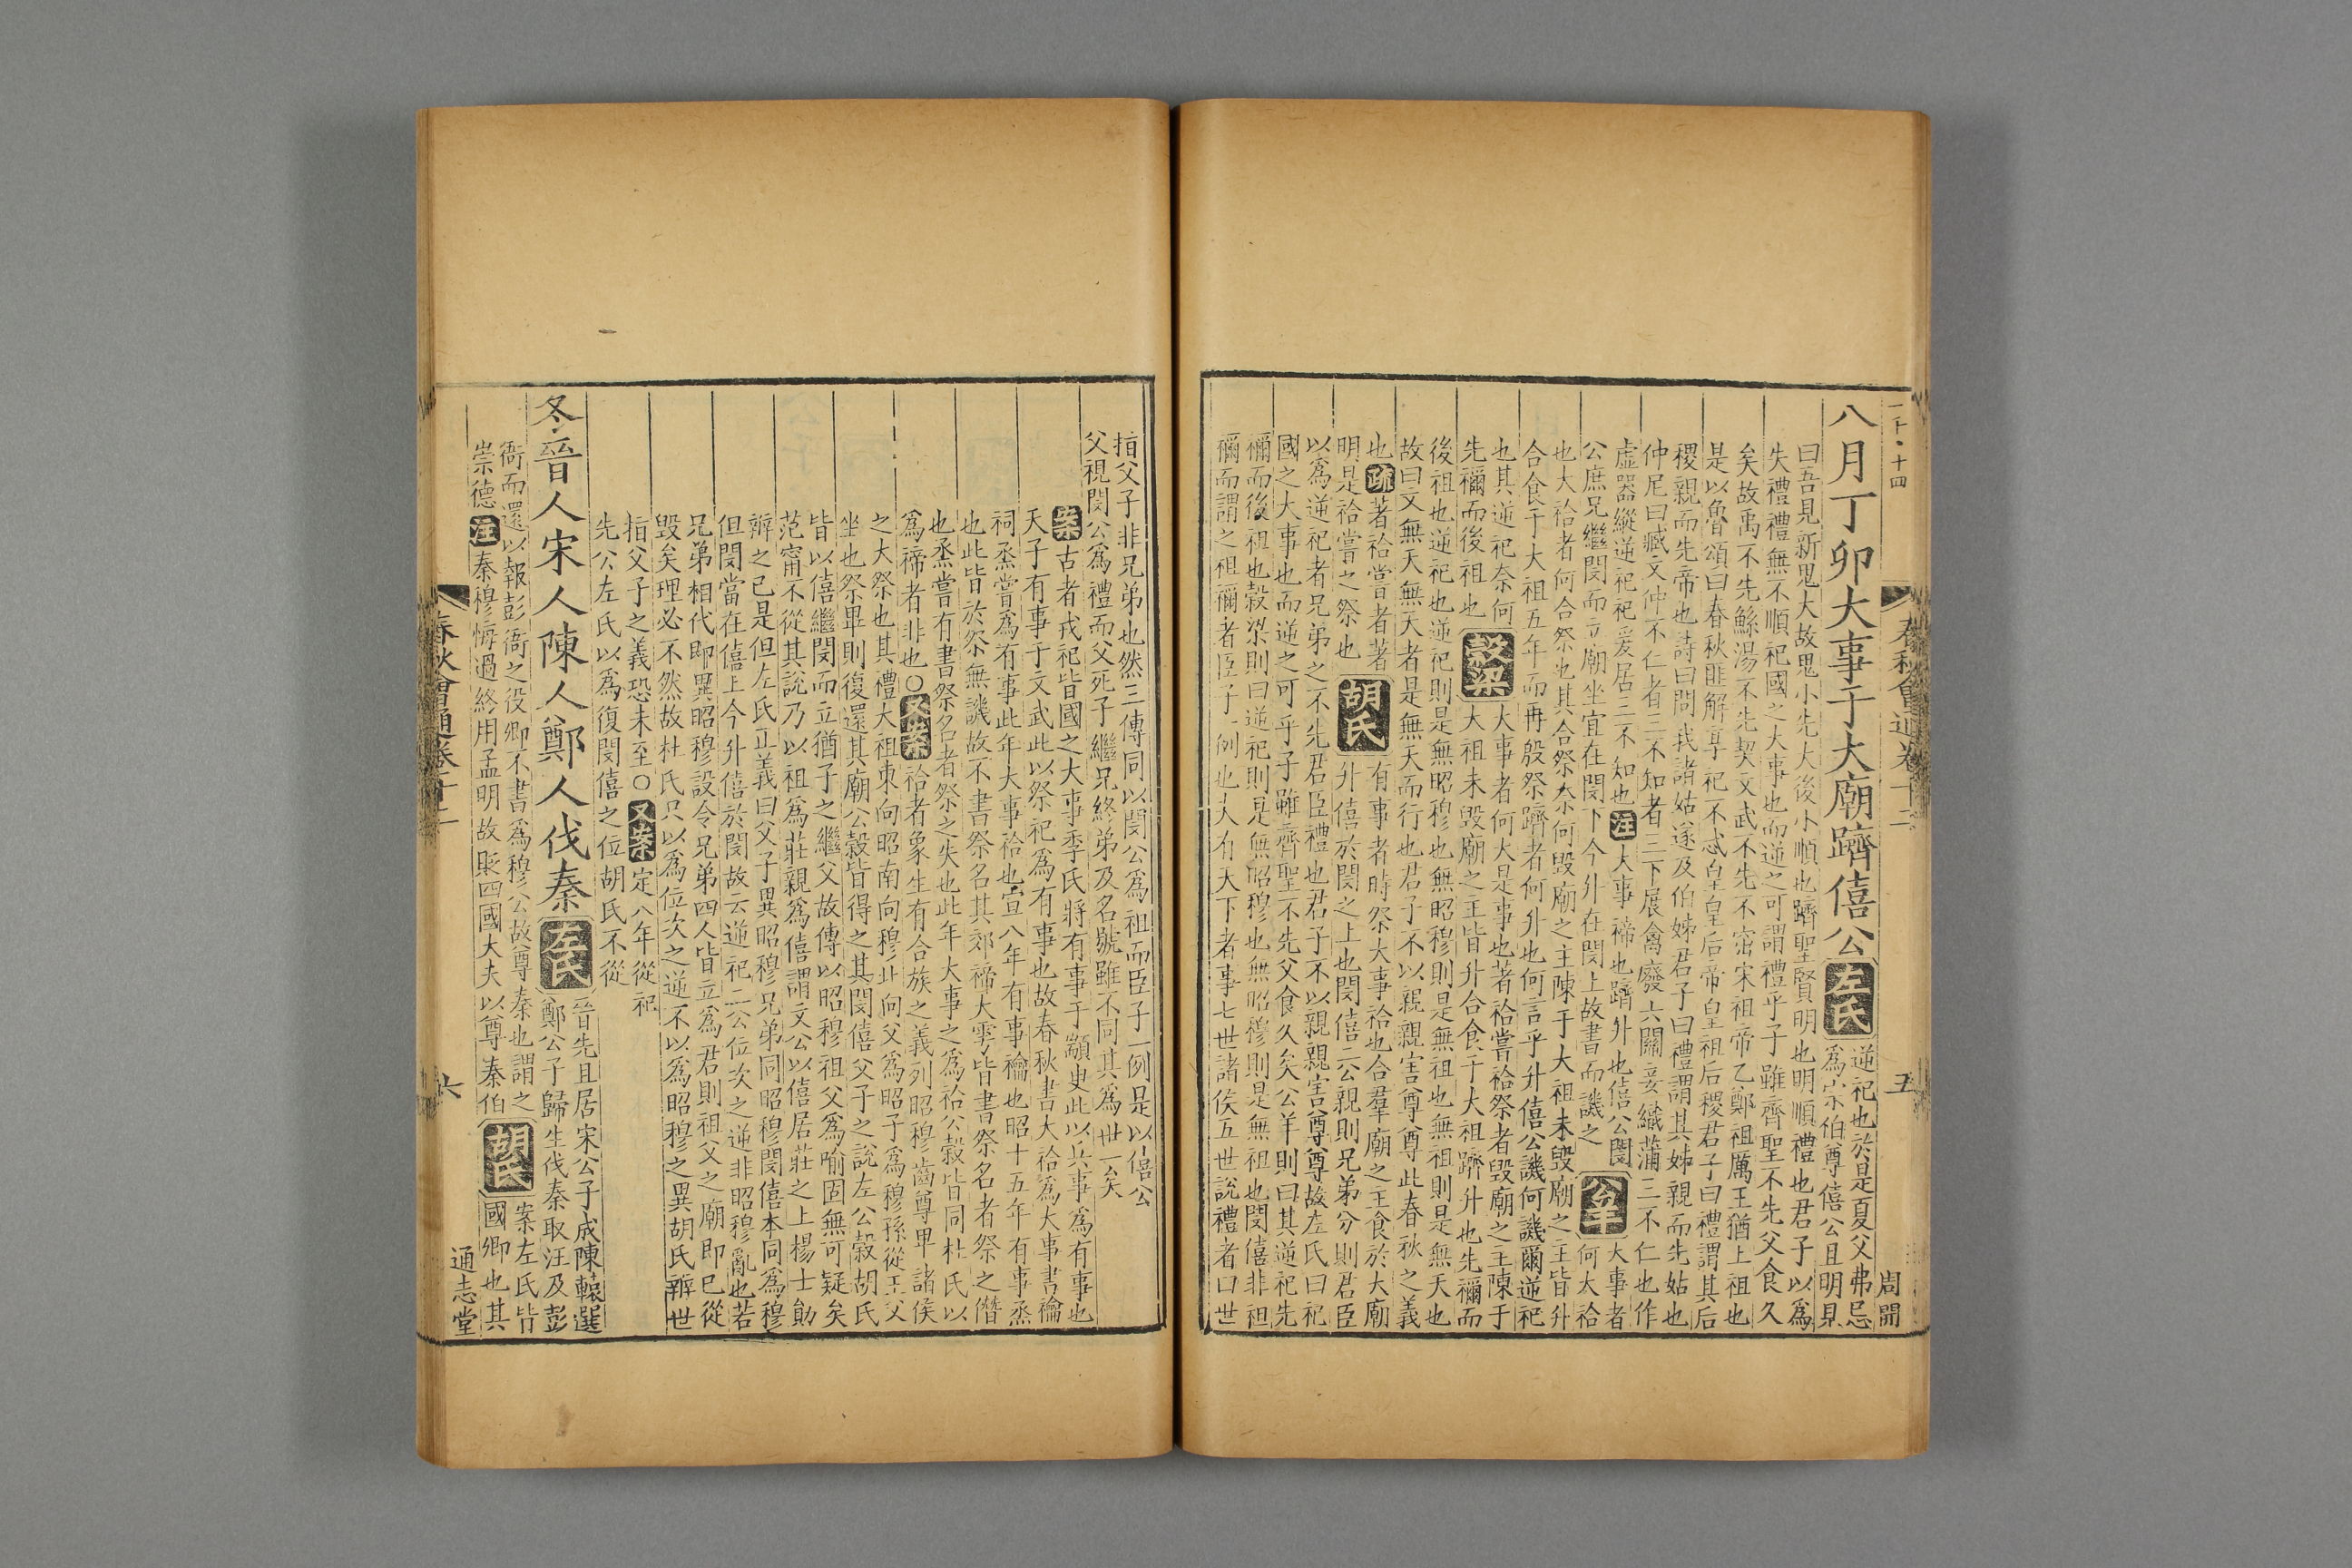 春秋會通卷十二
五
周開
八月丁卯大事于大廟躋僖公左氏逆祀也於是夏父弗忌
為宗伯尊僖公且明見
曰吾見新鬼大故鬼小先大後小順也躋聖賢明也明順禮也君子以為
失禮禮無不順祀國之大事也而逆之可謂禮乎子雖齊聖不先父食久
矣故禹不先鯀湯不先契文武不先不窋宋祖帝乙鄭祖厲王猶上祖也
是以魯頌曰春秋匪解享祀不忒皇皇后帝皇祖后稷君子曰禮謂其后
稷親而先帝也詩曰問我諸姑遂及伯姊君子曰禮謂其姊親而先姑也
仲尼曰臧文仲不仁者三不知者三下展禽廢六關妾織蒲三不仁也作
虛器縱逆祀祀爰居三不知也注大事禘也躋升也僖公閔
公庶兄繼閔而立廟坐宜在閔下今升在閔上故書而譏之公羊大事者
何大祫
也大祫者何合祭也其合祭奈何毀廟之主陳于大祖未毀廟之主皆升
合食于大祖五年而再殷祭躋者何升也何言乎升僖公譏何譏爾逆祀
也其逆祀奈何
先禰而後祖也穀梁大事者何大是事也著祫嘗祫祭者毀廟之主陳于
大祖未毀廟之主皆升合食于大祖躋升也先禰而
後祖也逆祀也逆祀則是無昭穆也無昭穆則是無祖也無祖則是無天也
故曰文無天無天者是無天而行也君子不以親親害尊尊此春秋之義
也疏著祫嘗者著
明是祫嘗之祭也胡氏有事者時祭大事祫也合羣廟之主食於大廟
升僖於閔之上也閔僖二公親則兄弟分則君臣
以為逆祀者兄弟之不先君臣禮也君子不以親親害尊尊故左氏曰祀
國之大事也而逆之可乎子雖齊聖不先父食久矣公羊則曰其逆祀先
禰而後祖也穀梁則曰逆祀則是無昭穆也無昭穆則是無祖也閔僖非祖
禰而謂之祖禰者臣子一例也夫有天下者事七世諸侯五世說禮者曰世
指父子非兄弟也然三傳同以閔公為祖而臣子一例是以僖公
父視閔公為禮而父死子繼兄終弟及名號雖不同其為世一矣
案古者戎祀皆國之大事季氏將有事于顓臾此以兵事為有事也
天子有事于文武此以祭祀為有事也故春秋書大祫為大事書禴
祠烝嘗為有事此年大事祫也宣八年有事禴也昭十五年有事烝
也此皆於祭無譏故不書祭名其郊禘大雩皆書祭名者祭之僭
也烝嘗有書祭名者祭之失也此年大事之為祫公穀皆同杜氏以
為禘者非也○又案祫者象生有合族之義列昭穆齒尊卑諸侯
之大祭也其禮大祖東向昭南向穆北向父為昭子為穆孫從王父
坐也祭畢則復還其廟公穀皆得之其閔僖父子之說左公穀胡氏
皆以僖繼閔而立猶子之繼父故傳以昭穆祖父為喻固無可疑矣
范甯不從其說乃以祖為莊親為僖謂文公以僖居莊之上楊士勛
辨之已是但左氏正義曰父子異昭穆兄弟同昭穆閔僖本同為穆
但閔當在僖上今升僖於閔故云逆祀二公位次之逆非昭穆亂也若
兄弟相代即異昭穆設令兄弟四人皆立為君則祖父之廟即已從
毀矣理必不然故杜氏只以為位次之逆不以為昭穆之異胡氏辨世
指父子之義恐未至○又案定八年從祀
先公左氏以為復閔僖之位胡氏不從
冬晉人宋人陳人鄭人伐秦左氏晉先且居宋公子成陳轅選
鄭公子歸生伐秦取汪及彭
衙而還以報彭衙之役卿不書為穆公故尊秦也謂之
崇德注秦穆悔過終用孟明故貶四國大夫以尊秦伯胡氏案左氏皆
國卿也其
春秋會通卷十二
六
通志堂